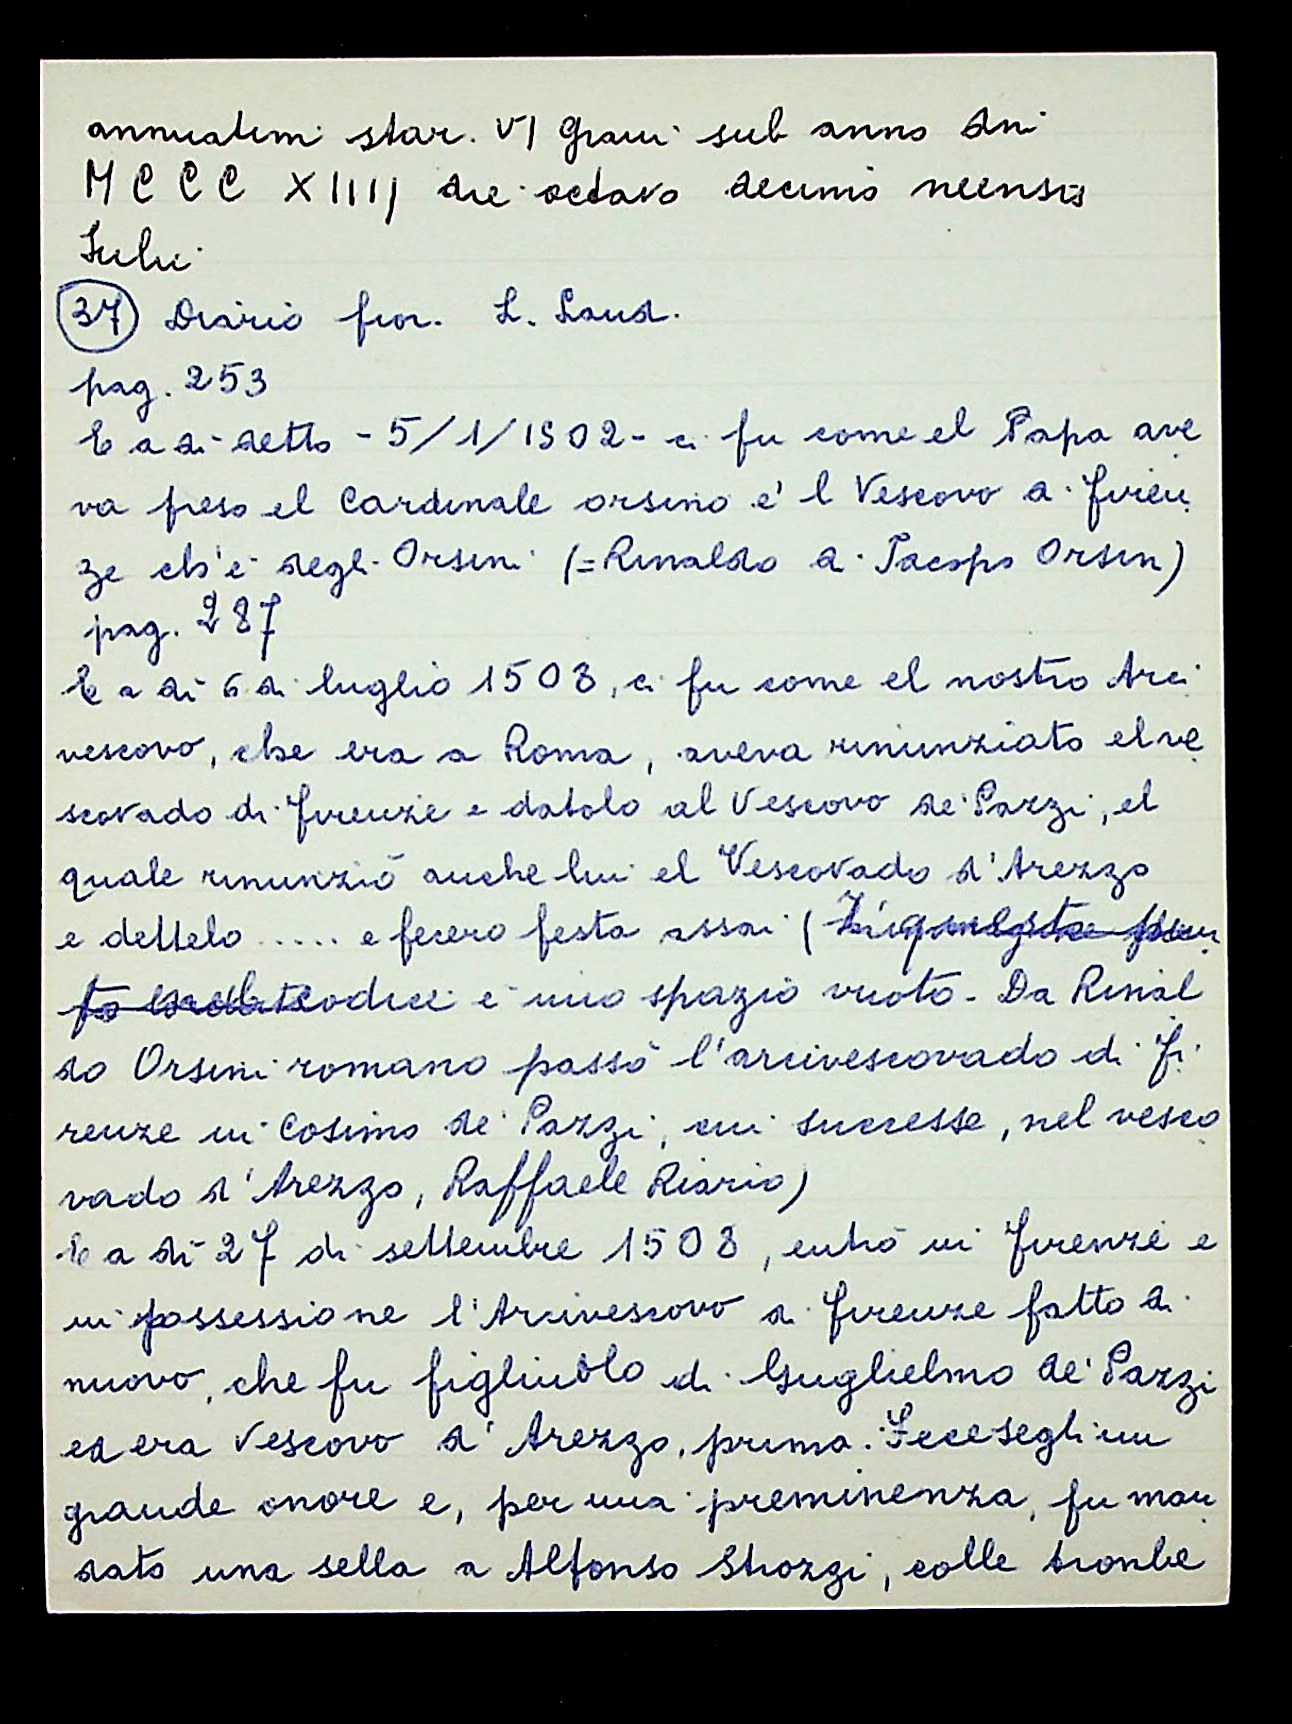 annuatim star. VI Grani sub anno Dni
MCCC XIIIJ die octavo decimo mensis
Iulii
37 Diario fior. L. Land.
pag. 253
E a dì detto - 5/1/1502 - ci fu come el Papa ave
va preso el Cardinale orsino e'l Vescovo di Firen
ze ch'è degli Orsini (= Rinaldo di Jacopo Orsini)
pag. 287
E a dì 6 di luglio 1508, ci fu come el nostro Arci
vescovo, che era a Roma, aveva rinunziato el ve
scovado di Firenze e datolo al Vescovo de' Pazzi, el
quale rinunziò anche lui el Vescovado d'Arezzo
e dettelo ..... e fecero festa assai (In questo pun
to codice è uno spazio vuoto - Da Rinal
do Orsini romano passò l'arcivescovado di Fi
renze in Cosimo de' Pazzi, cui successe, nel vesco
vado d'Arezzo, Raffaele Riario)
E a dì 27 di settembre 1508, entrò in Firenze e
in possessione l'Arcivescovo di Firenze fatto di
nuovo, che fu figliuolo di Guglielmo de' Pazzi
ed era Vescovo d'Arezzo, prima. Fecesegli un
grande onore e, per una preminenza, fu man
dato una sella a Alfonso Strozzi, colle trombe